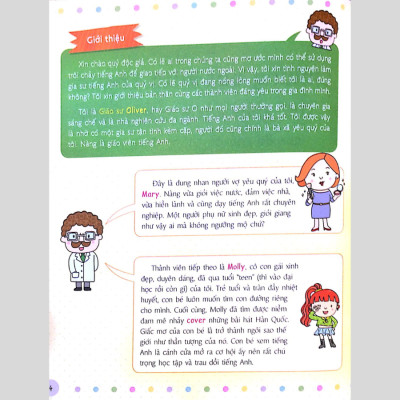 Giới thiệu
Xin chào quý độc giả. Có lẽ ai trong chúng ta cũng mơ ước mình có thể sử dụng
trôi chảy tiếng Anh để giao tiếp với người nước ngoài. Vì vậy, tôi xin tình nguyện làm
gia sư tiếng Anh của quý vị. Có lẽ quý vị đang nóng lòng muốn biết tôi là ai, đúng
không? Tôi xin giới thiệu bản thân cùng các thành viên đáng yêu trong gia đình mình.
Tôi là Giáo sư Oliver, hay Giáo sư O như mọi người thường gọi, là chuyên gia
sáng chế và là nhà nghiên cứu đa ngành. Tiếng Anh của tôi khá tốt. Tôi có được vậy
là nhờ có một gia sư tận tình kèm cặp, người đó cũng chính là bà xã yêu quý của
tôi. Nàng là giáo viên tiếng Anh.
Đây là dung nhan người vợ yêu quý của tôi,
Mary. Nàng vừa giỏi việc nước, đảm việc nhà,
vừa hiền lành và cũng dạy tiếng Anh rất chuyên
nghiệp. Một người phụ nữ xinh đẹp, giỏi giang
như vậy ai mà không ngưỡng mộ chứ?
Thành viên tiếp theo là Molly, cô con gái xinh
đẹp, duyên dáng, đã qua tuổi "teen" (thì vào đại
học rồi còn gì) của tôi. Trẻ tuổi và tràn đầy nhiệt
huyết, con bé luôn muốn tìm con đường riêng
cho mình. Cuối cùng, Molly đã tìm được niềm
đam mê nhảy cover những bài hát Hàn Quốc.
Giấc mơ của con bé là trở thành ngôi sao thế
giới như thần tượng của nó. Con bé xem tiếng
Anh là cánh cửa mở ra cơ hội ấy nên rất chú
trọng học tập và trau dồi tiếng Anh.
4